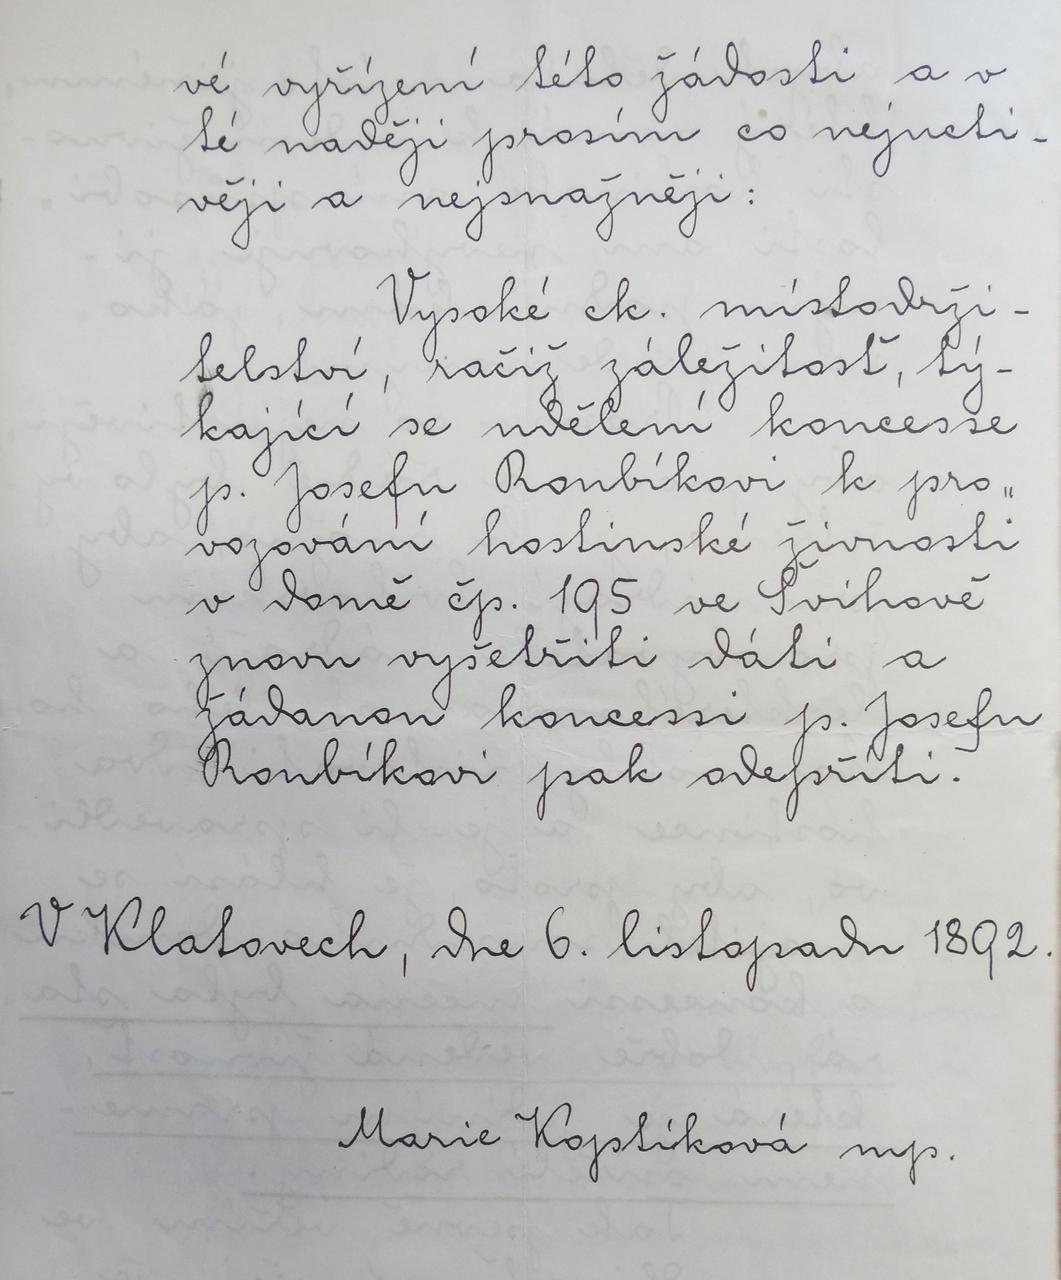 vé vyřízení této žádosti a v
té naději prosím co nejucti-
věji a nejsnažněji:
Vysoké ck. místodrži-
telství, račiž záležitosť, tý-
kající se udělení koncesse
p. Josefu Roubíkovi k pro„
vozování hostinské živnosti
v domě čp. 195 ve Švihově
znovu vyšetřiti dáti a
žádanou koncessi p. Josefu
Roubíkovi pak odepříti.
V Klatovech, dne 6. listopadu 1892.
Marie Koptíková mp.